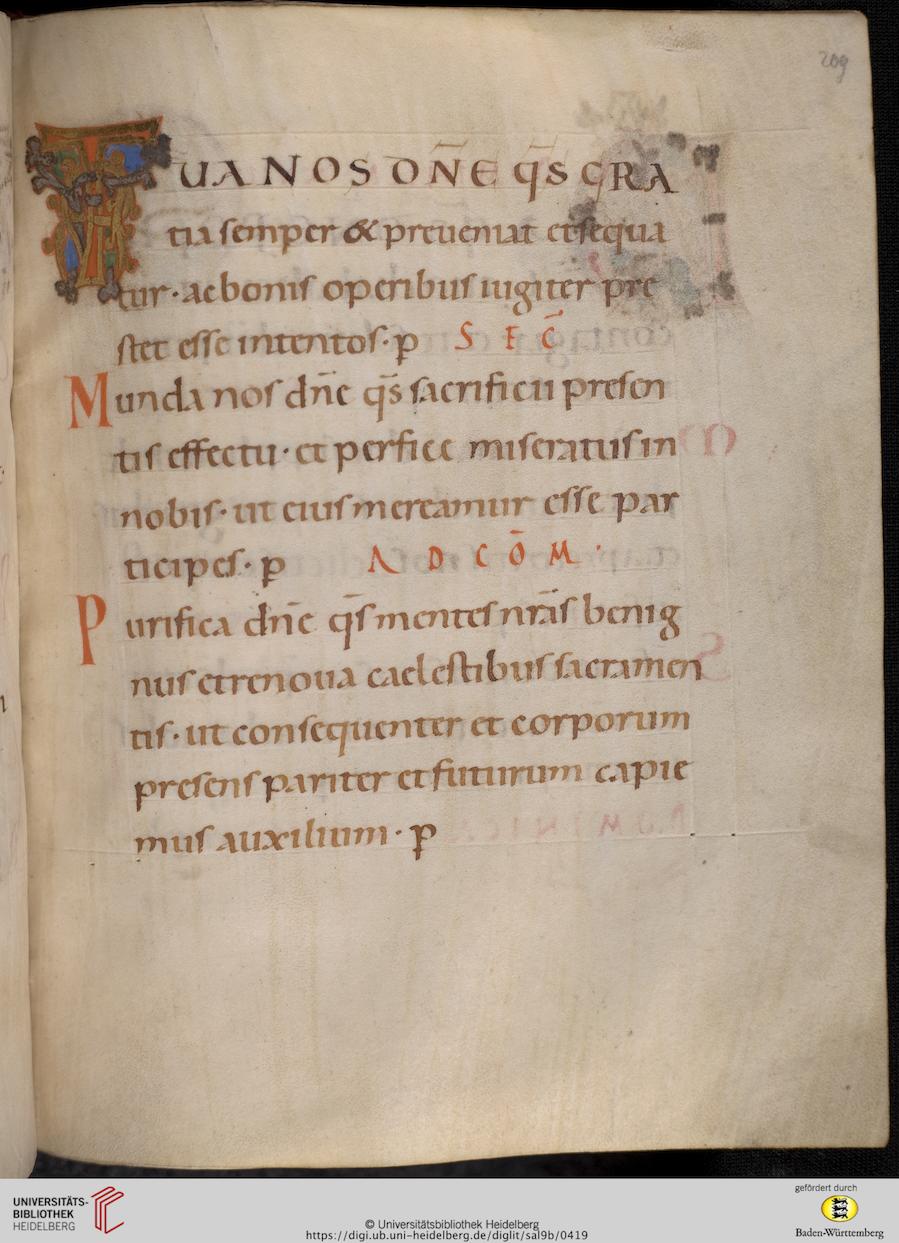 209
TUA NOS DN̄E q̄S GRA
tia semper & preueniat et sequa
tur · ac bonis operibus iugiter pre
stet esse intentos · p S E C̄
Munda nos dn̄e q̄s sacrificii presen
tis effectu · et perfice miseratus in
nobis · ut eius mereamur esse par
ticipes · p A D C Ō M ·
Purifica dn̄e q̄s mentes nr̄as benig
nus et renoua caelestibus sacramen
tis · ut consequenter et corporum
presens pariter et futurum capie
mus auxilium · p
UNIVERSITÄTS-
BIBLIOTHEK
HEIDELBERG
© Universitätsbibliothek Heidelberg
https://digi.ub.uni-heidelberg.de/diglit/sal9b/0419
gefördert durch
Baden-Württemberg